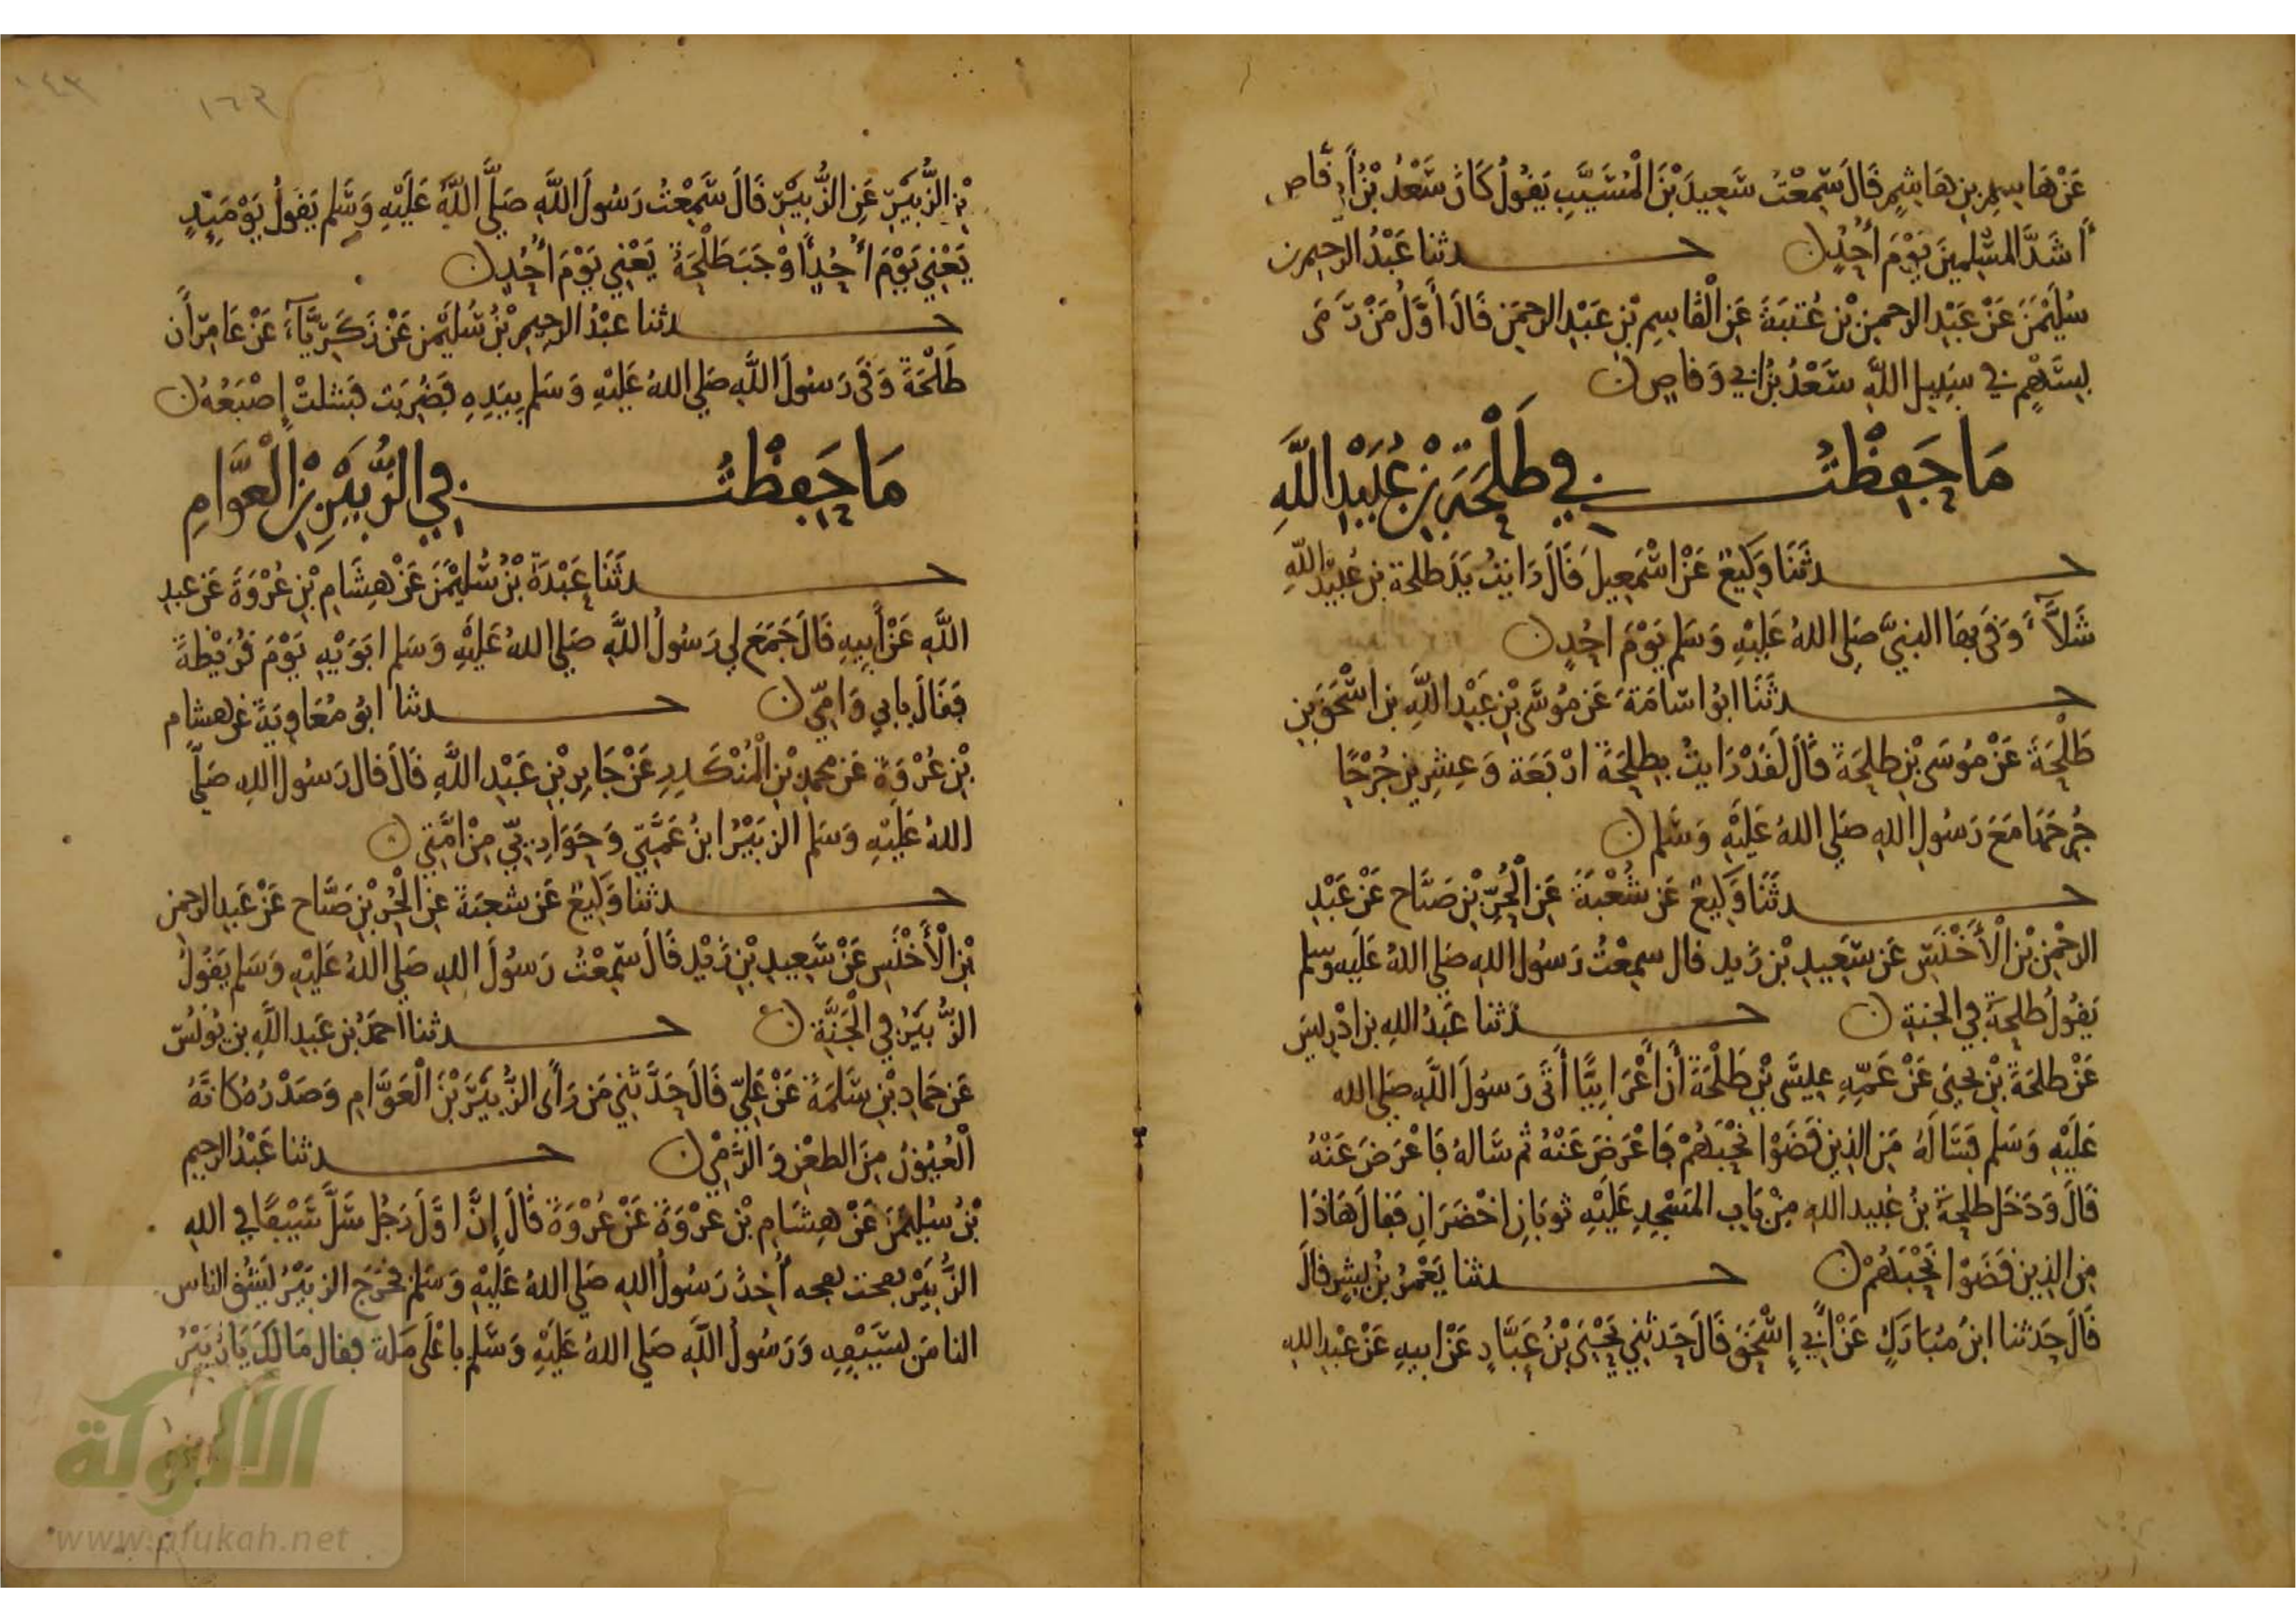 عَنْ هَاشِمِ بنِ هَاشِمٍ قَالَ سَمِعْتُ سَعِيدَ بْنَ الْمُسَيَّبِ يَقُولُ كَانَ سَعْدُ بْنُ أَبِي وَقَّاص
أَشَدَّ المسْلِمِينَ يَوْمَ أُحُدٍ ن حدثنا عَبْدُ الرحيم بن
سُلَيْمٰنَ عَنْ عَبْدِ الرحمن بْنِ عُتبَةَ عَنِ الْقَاسِمِ بْنِ عَبْدِ الرحمٰنِ قَالَ أَوَّلُ مَنْ رَمَى
بِسَهْمٍ في سَبِيلِ اللَّهِ سَعْدُ بْنُ أبي وَقاصٍ ن
مَا حَفِظْتُ فِي طَلْحَةَ بْنِ عُبَيْدِ اللَّهِ
حدثَنَا وَكِيعٌ عَنْ اسْمٰعِيلَ قَالَ رَايتُ يَدَ طلحة بن عُبَيْدِ اللَّهِ
شَلَّآءَ وَقَى بهَا النبيَّ صَلى اللهُ عَلَيْهِ وَسَلم يَوْمَ احُدٍ ن
حدثَنَا ابُو اسَامَةَ عَن مُوسَى بْنِ عَبْدِ اللَّهِ بن اسْحٰقَ بن
طَلْحَةَ عَنْ مُوسَى بْنِ طلحَةَ قَالَ لَقَدْ رَايتُ بِطلحَةَ ارْبَعَة وَعِشرِينَ جُرْحًا
جُرحَهَا مَعَ رَسُولِ اللهِ صَلى اللهُ عَلَيْهِ وَسَلم ن
حدثَنَا وَكِيعٌ عَن شُعْبَةَ عَنِ الْحُرِّ بْنِ صَيَّاح عَنْ عَبْدِ
الرحْمٰنِ بْنِ الْأَخْنَسِ عَن سَعِيدِ بْنِ زَيد قال سمِعْتُ رَسُولَ اللهِ صَلى اللهُ عَلَيه وسلم
يَقُولُ طلحَةُ فِي الجنةِ ن حدثنا عَبْدُ اللهِ بن ادْرِيسَ
عَنْ طلحَةَ بْنِ يحيَى عَنْ عَمِّهِ عِيسَى بْنِ طَلْحَةَ أَنَّ أَعْرَابِيًّا أَتَى رَسُولَ اللَّهِ صَلى الله
عَلَيْهِ وَسَلم فَسَالَهُ مَنِ الذين قَضَوْا نَحْبَهُمْ فَاعْرَضَ عَنْهُ ثم سَالهُ فَاعْرَضَ عَنْهُ
قَالَ وَدَخَلَ طلحَةُ بنُ عُبيد اللهِ مِنْ بَابِ المَسْجِدِ عَلَيْهِ ثوبَانِ اخْضَرَانِ فَقالَ هَاذَا
مِنَ الذِين قَضَوْا نَحْبَهُمْ ن حدثنا يَعْمَرُ بْنُ بِشرٍ قالَ
قَالَ حَدثنا ابنُ مُبَارَكٍ عَنْ أَبِي إِسْحٰقَ قَالَ حَدثني يَحْيَى بْنُ عَبَّادٍ عَنْ ابيهِ عَنْ عَبْدِ اللهِ
١٦٣
١٤٣
بْنِ الزُّبَيْرِ عَنِ الزُّبَيْرِ قَالَ سَمِعْتُ رَسُولَ اللَّهِ صَلَّى اللَّهُ عَلَيْهِ وَسَلم يَقُولُ يَوْمَئِذٍ
يَعْنِي يَوْمَ أُحُدٍ أَوْجَبَ طَلْحَةُ يَعْنِي يَوْمَ أُحُدٍ ن
حدثنا عَبْدُ الرحِيمِ بْنُ سُلَيْمٰن عَنْ زَكَرِيَّآءَ عَنْ عَامِرٍ أَن
طَلْحَةَ وَقَى رَسُولَ اللَّهِ صَلى اللهُ عَلَيْهِ وَسَلم بِيَدِهِ فَضُرِبَت فَشلتْ إِصْبَعُهُ ن
مَا حَفِظْتُ فِي الزُّبَيْرِ بْنِ الْعَوَّامِ
حدثَنَا عَبْدَةُ بْنُ سُلَيْمٰنَ عَنْ هِشَامِ بْنِ عُرْوَةَ عَن عبدِ
اللَّهِ عَنْ أَبِيهِ قَالَ جَمَعَ لي رَسُولُ اللَّهِ صَلى اللهُ عَلَيْهِ وَسَلم ابَوَيْهِ يَوْمَ قُرَيْظَةَ
فَقَالَ بابي وَامِّي ن حدثنا ابُو مُعَاوِيَةَ عَن هشام
بْنِ عُرْوَةَ عَن محمدِ بْنِ الْمُنْكَدِرِ عَنْ جَابِرِ بْنِ عَبْدِ اللَّهِ قَالَ قال رَسُولُ اللهِ صَلَّى
اللهُ عَلَيْهِ وَسَلم الزبَيْرُ ابنُ عَمَّتِي وَحَوَارِيِّي مِنْ امَّتِي ن
حدثنا وَكِيعٌ عَن شعبَةَ عَنِ الْحُر بْنِ صَيَّاح عَنْ عَبدِ الرحمٰن
بْنِ الْأَخْنَسِ عَنْ سَعِيدِ بْنِ زَيْدٍ قَالَ سَمِعْتُ رَسُولَ اللهِ صَلى اللهُ عَلَيْهِ وَسَلم يَقُولُ
الزُّبَيْرُ فِي الْجَنَّةِ ن حدثنا أَحمَدُ بن عَبدِ اللَّهِ بن يُونُسَ
عَن حَمادِ بْنِ سَلَمَةَ عَنْ عَلِيّ قَالَ حَدَّثَنِي مَن رَأَى الزُّبَيْرَ بْنَ الْعَوَّامِ وَصَدْرُهُ كانَّهُ
الْعُيُونُ مِنَ الطعْنِ وَالرَّمْيِ ن حدثنا عَبْدُ الرحيم
بْنُ سُلَيْمٰنَ عَنْ هِشَامِ بْنِ عُرْوَةَ عَنْ عُرْوَةَ قَالَ إِنَّ اوَّلَ رَجُل سَلَّ سَيْفًا فِي اللهِ
الزُّبَيْرُ نفحت نفحه أُخِذَ رَسُولُ اللهِ صَلى اللهُ عَلَيْهِ وَسَلم فخَرَجَ الزبَيْرُ يَشُق الناس
الناسَ بِسَيْفِهِ وَرَسُولُ اللَّهِ صَلى اللهُ عَلَيْهِ وَسَلم باعْلَى مَكة فقال مَا لكَ يَا زُبَيْرُ
الألوكة
www.alukah.net